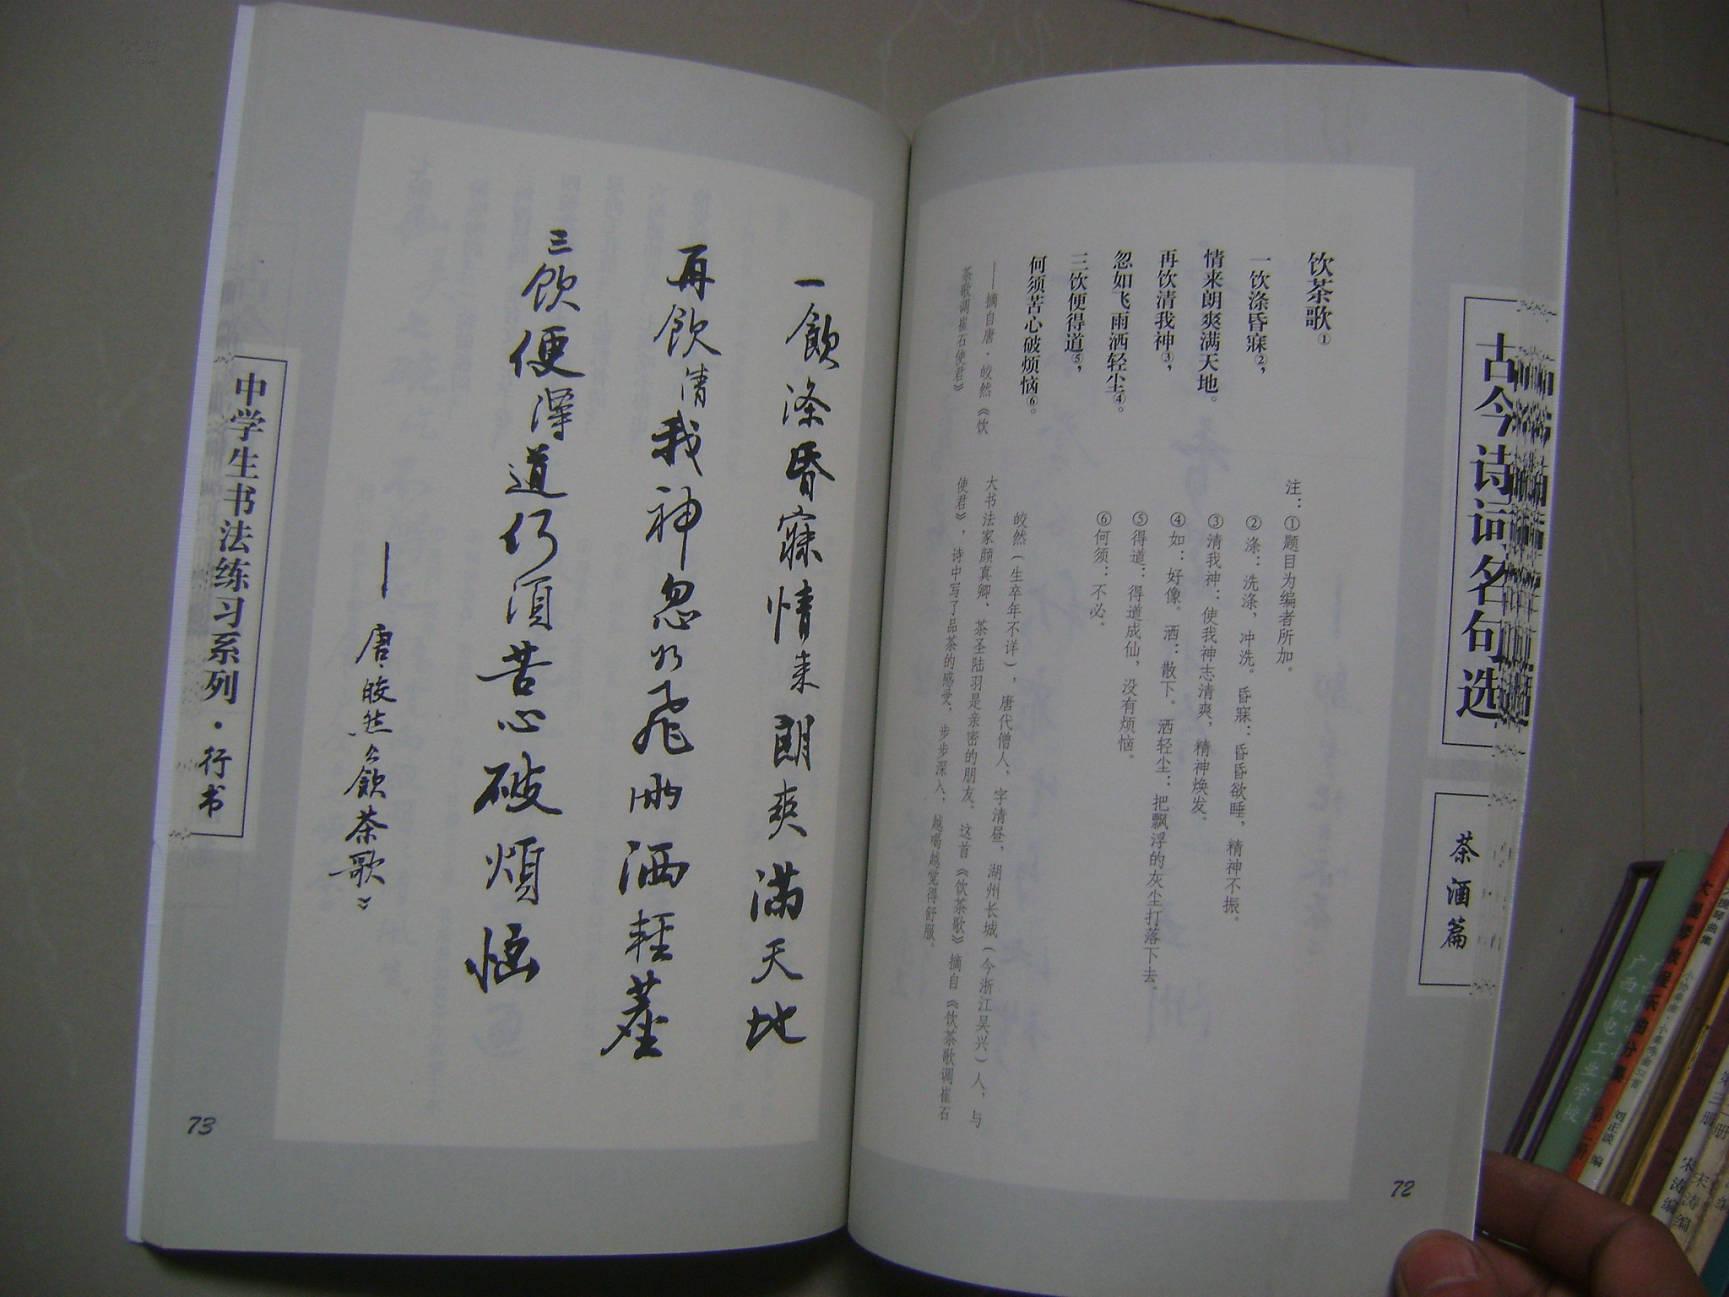 古今诗词名句选
茶酒篇
饮茶歌①
一饮涤昏寐②，
情来朗爽满天地。
再饮清我神③，
忽如飞雨洒轻尘④。
三饮便得道⑤，
何须苦心破烦恼⑥。
——摘自唐·皎然《饮
茶歌调崔石使君》
注：①题目为编者所加。
②涤：洗涤，冲洗。昏寐：昏昏欲睡，精神不振。
③清我神：使我神志清爽，精神焕发。
④如：好像。洒：散下。洒轻尘：把飘浮的灰尘打落下去。
⑤得道：得道成仙，没有烦恼。
⑥何须：不必。
皎然（生卒年不详），唐代僧人，字清昼，湖州长城（今浙江吴兴）人，与
大书法家颜真卿、茶圣陆羽是亲密的朋友。这首《饮茶歌》摘自《饮茶歌调崔石
使君》，诗中写了品茶的感受，步步深入，越喝越觉得舒服。
72
一飲涤昏寐情来朗爽满天地
再飲清我神忽如飛雨洒輕塵
三飲便得道何須苦心破煩惱
——唐·皎然《飲茶歌》
中学生书法练习系列·行书
73
广西机电工业学校
宋涛 编